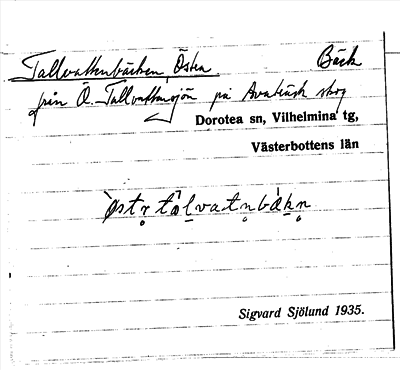 Tallvattenbäcken, Östra. Bäck
från Ö. Tallvattensjön på Avaträsk skog
Dorotea sn, Vilhelmina tg,
Västerbottens län
Sigvard Sjölund 1935.